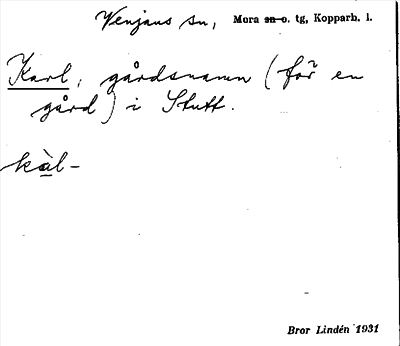 Venjans sn, Mora sn o. tg, Kopparb. l.
Karl, gårdsnamn (för en
gård) i Stutt.
kàl-
Bror Lindén 1931